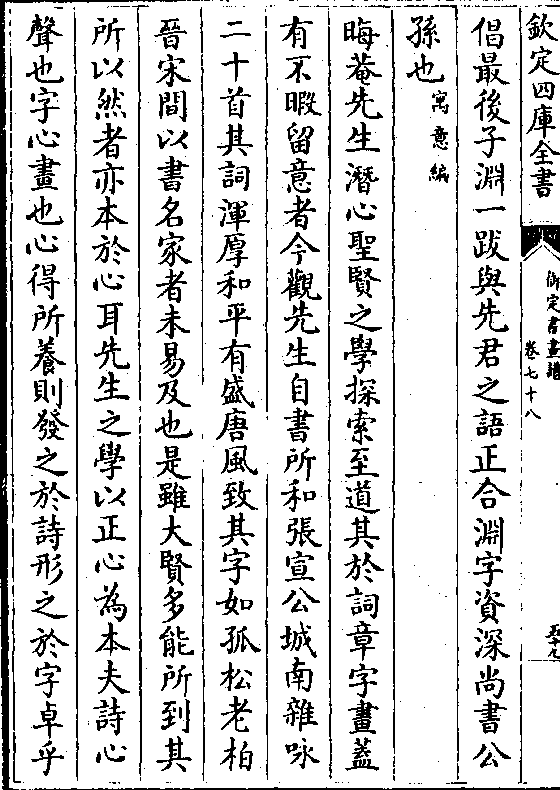 欽定四庫全書
御定書畫譜
卷七十八
五十九
倡最後子淵一跋與先君之語正合淵字資深尚書公
孫也寓意編
晦菴先生潛心聖賢之學探索至道其於詞章字畫葢
有不暇留意者今觀先生自書所和張宣公城南雜咏
二十首其詞渾厚和平有盛唐風致其字如孤松老柏
晉宋間以書名家者未易及也是雖大賢多能所到其
所以然者亦本於心耳先生之學以正心為本夫詩心
聲也字心畫也心得所養則發之於詩形之於字卓乎